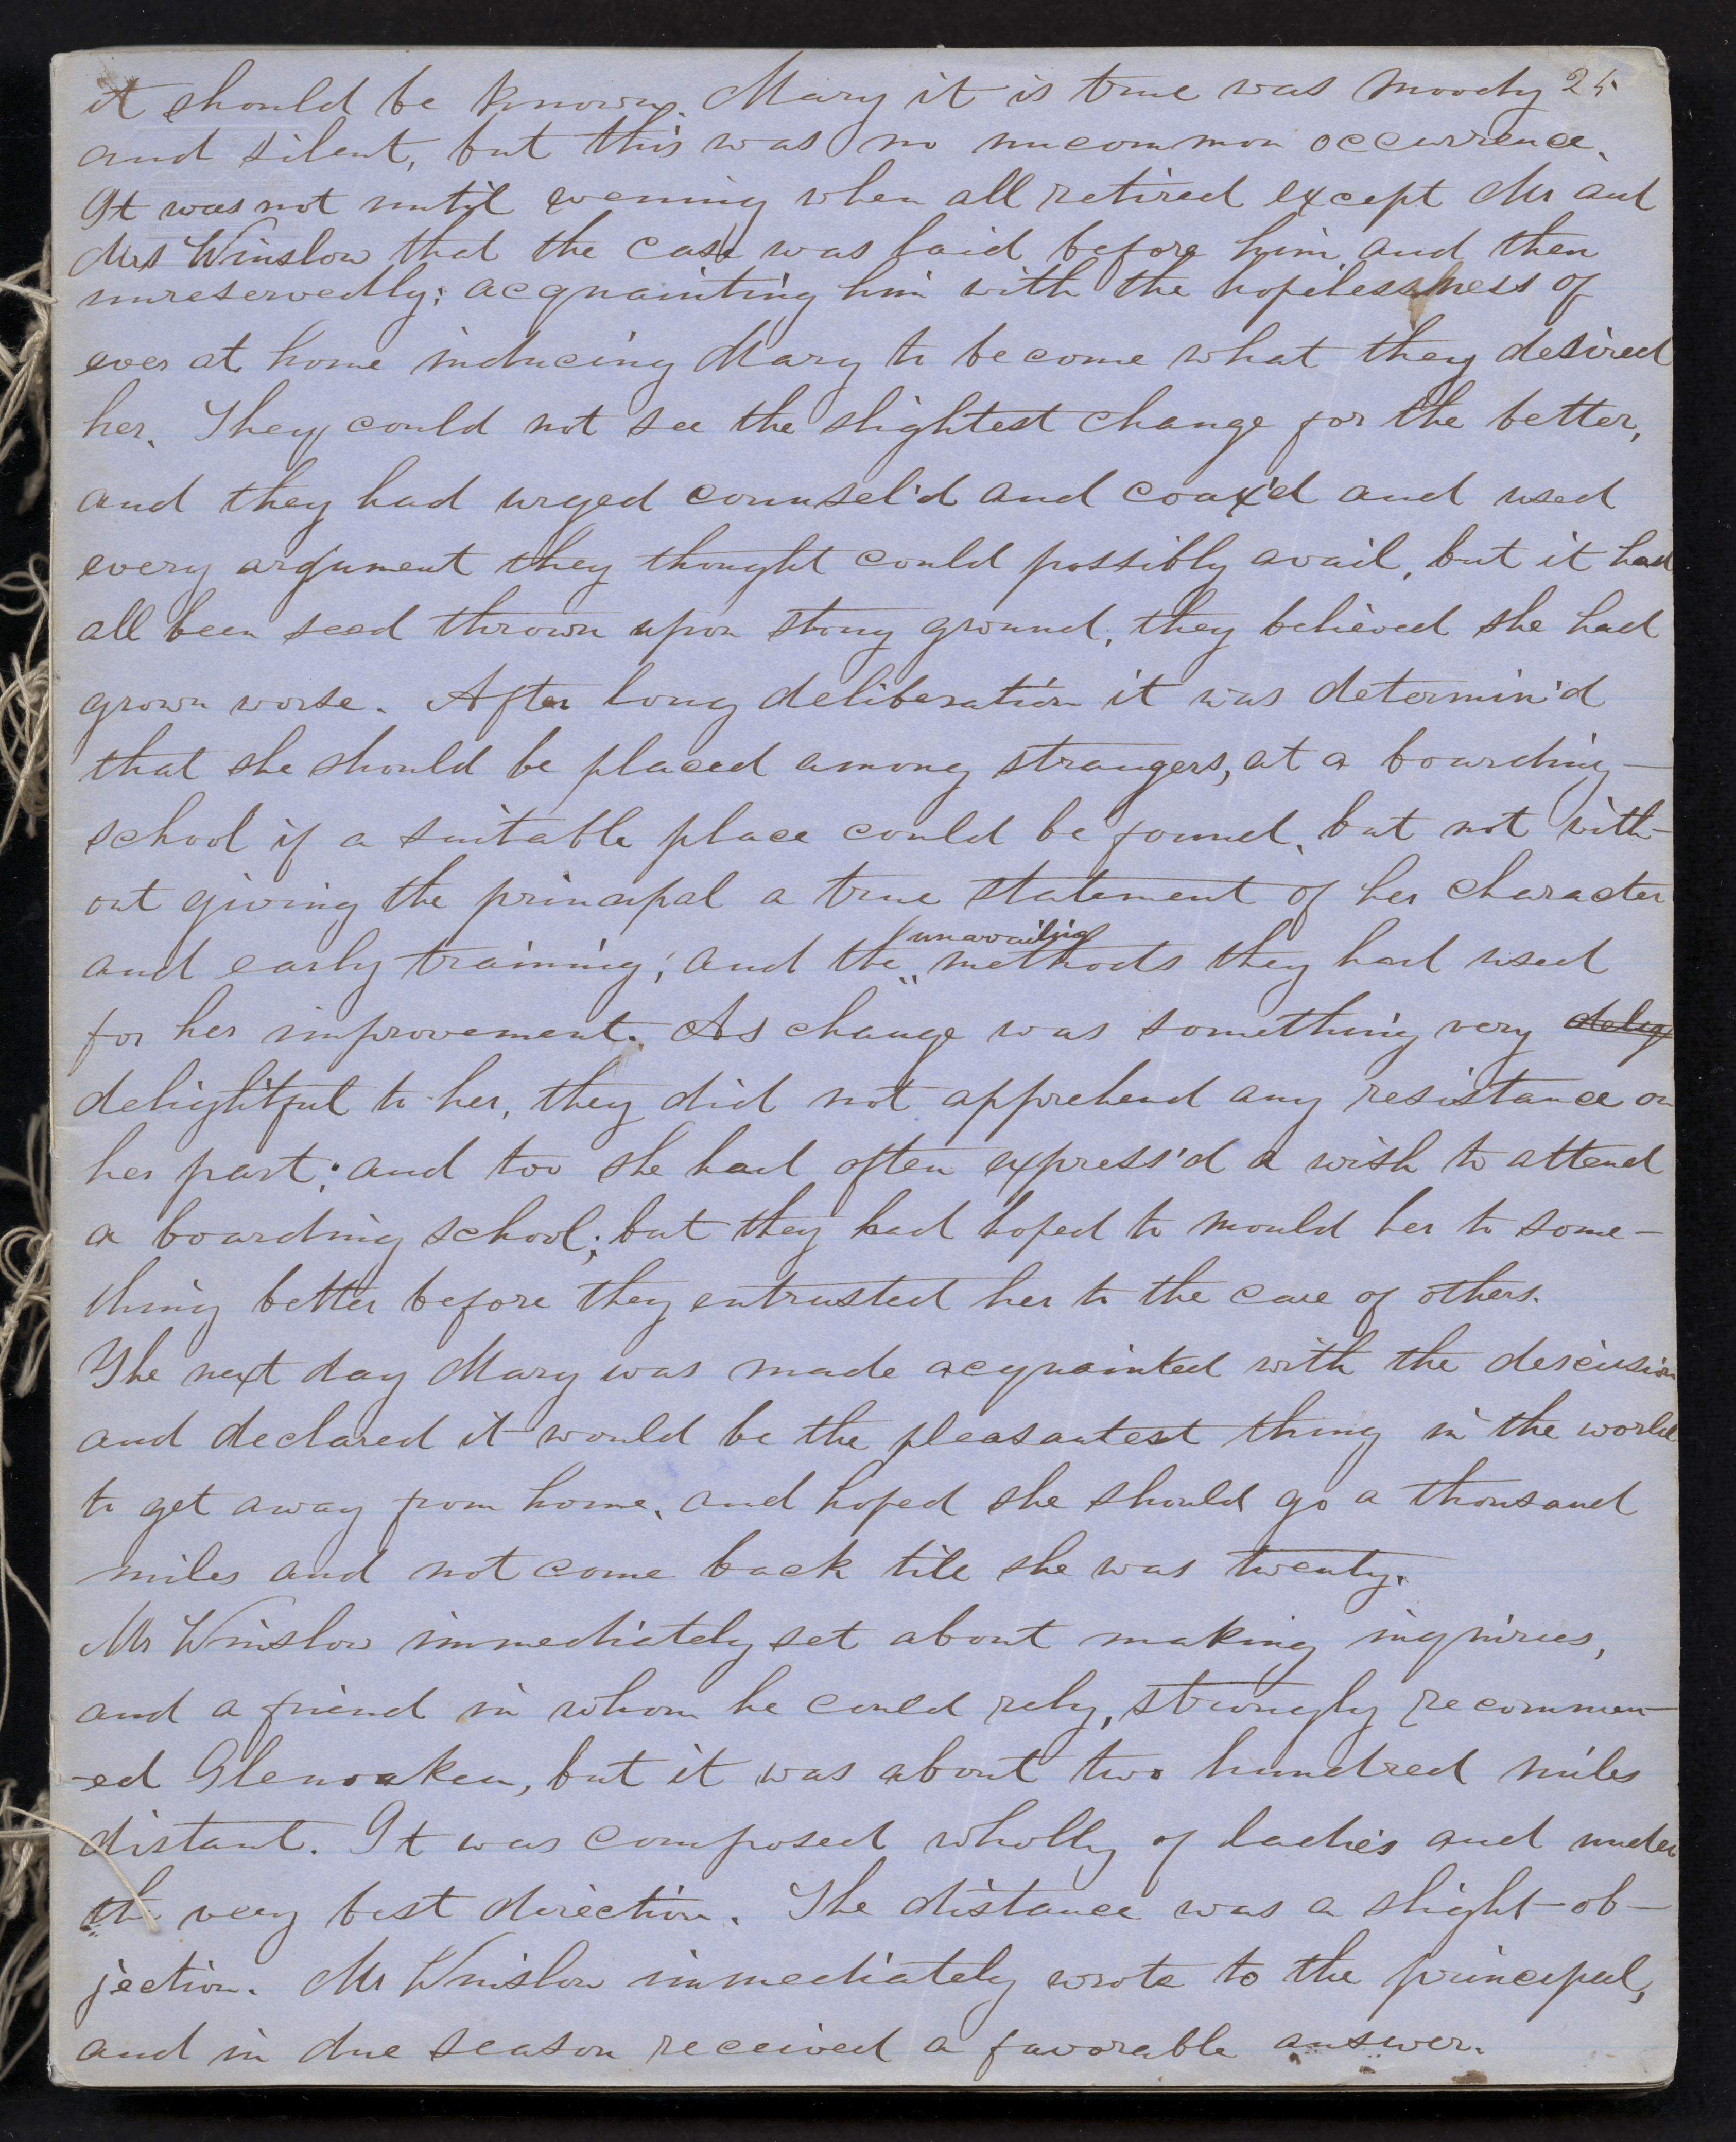 it should be known. Mary it is true was moody 25
and silent, but this was no uncommon occurrence.
It was not until evening when all retired except Mr and
Mrs Winslow that the case was laid before him and then
unreservedly; acquainting him with the hopelessness of
ever at home inducing Mary to become what they desired
her. They could not see the slightest change for the better,
and they had urged counsel'd and coax'd and used
every argument they thought could possibly avail, but it had
all been seed thrown upon stony ground, they believed she had
grown worse. After long deliberation it was determin'd
that she should be placed among strangers, at a boarding-
school if a suitable place could be found, but not with-
out giving the principal a true statement of her character
unavailing
and early training; and the methods they had used
for her improvement. As change was something very delig
delightful to her, they did not apprehend any resistance on
her part; and too she had often express'd a wish to attend
a boarding school; but they had hoped to mould her to some-
thing better before they entrusted her to the care of others.
The next day Mary was made acquainted with the descision
and declared it would be the pleasantest thing in the world
to get away from home, and hoped she should go a thousand
miles and not come back till she was twenty.
Mr Winslow immediately set about making inquiries,
and a friend in whom he could rely, strongly recommen-
-ed Glenoaken, but it was about two hundred miles
distant. It was composed wholly of ladies and under
the very best direction. The distance was a slight ob-
jection. Mr Winslow immediately wrote to the principal,
and in due season received a favorable answer.